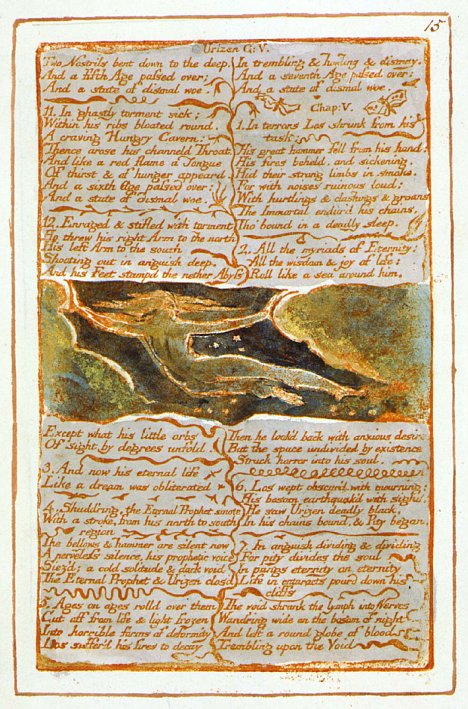 15
Urizen C: V.
Two Nostrils bent down to the deep.
And a fifth Age passed over;
And a state of dismal woe.
11. In ghastly torment sick;
Within his ribs bloated round.
A craving Hungry Cavern:
Thence arose his channeld Throat.
And like a red flame a Tongue
Of thirst & of hunger appeard
And a sixth Age passed over:
And a state of dismal woe.
12. Enraged & stifled with torment
He threw his right Arm to the north
His left Arm to the south
Shooting out in anguish deep,
And his Feet stampd the nether Abyss
In trembling & howling & dismay.
And a seventh Age passed over:
And a state of dismal woe.
Chap: V.
1. In terrors Los shrunk from his
task:
His great hammer fell from his hand:
His fires beheld, and sickening
Hid their strong limbs in smoke.
For with noises ruinous loud:
With hurtlings & clashings & groans
The Immortal endur'd his chains,
Tho bound in a deadly sleep.
2. All the myriads of Eternity:
All the wisdom & joy of life:
Roll like a sea around him,
Except what his little orbs
Of sight by degrees unfold.
3. And now his eternal life
Like a dream was obliterated
4. Shudd'ring, the Eternal Prophet smote
With a stroke, from his north to south
region
The bellows & hammer are silent now
A nerveless silence, his prophetic voice
Siez'd; a cold solitude & dark void
The Eternal Prophet & Urizen clos'd
5. Ages on ages rolld over them
Cut off from life & light frozen
Into horrible forms of deformity
Los suffer'd his fires to decay
Then he look'd back with anxious desire
But the space undivided by existence
Struck horror into his soul.
6. Los wept obscur'd with mourning:
His bosom earthquak'd with sighs;
He saw Urizen deadly black,
In his chains bound, & Pity began,
7. In anguish dividing & dividing
For pity divides the soul
In pangs eternity on eternity
Life in cataracts pourd down his
cliffs
The void shrunk the lymph into Nerves
Wand'ring wide on the bosom of night
And left a round globe of blood
Trembling upon the Void